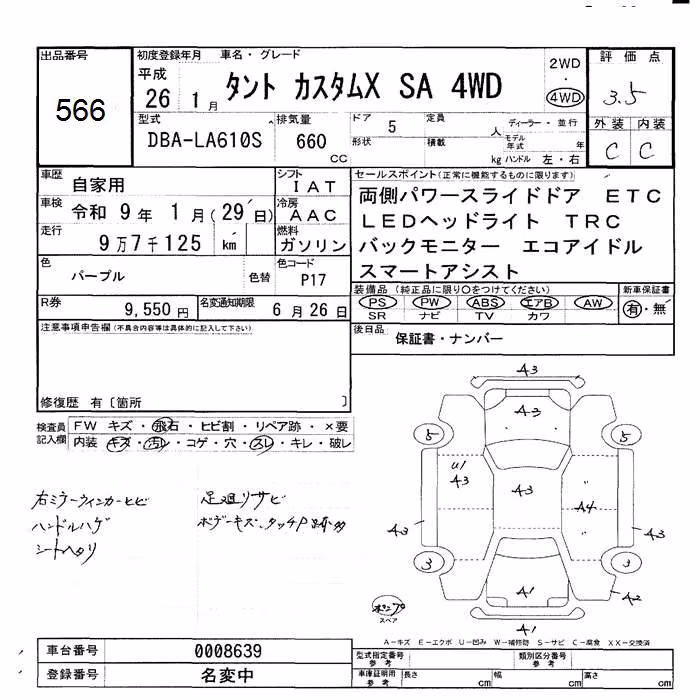 出品番号 初度登録年月 車名・グレード 評価点
566 平成 26 1月 タント カスタムX SA 4WD 2WD・4WD 3.5
型式 排気量 ドア 5 定員 人 ディーラー・並行 外装 内装
DBA-LA610S 660 CC 形状 積載 kg モデル年式 年 ハンドル 左・右 C C
車歴 自家用 シフト IAT セールスポイント(正常に機能するものに限ります)
車検 令和 9年 1月(29日) 冷房 AAC 両側パワースライドドア ETC
走行 9万7千125 km 燃料 ガソリン LEDヘッドライト TRC
バックモニター エコアイドル
色 パープル 色替 色コード P17 スマートアシスト
R券 9,550円 名変通知期限 6月26日 装備品(純正品に限り○をつけてください) 新車保証書
PS PW ABS エアB AW 有・無
SR ナビ TV カワ
注意事項申告欄(不具合内容等は具体的に記入して下さい)
後日品 保証書・ナンバー
修復歴 有〔箇所 〕
検査員記入欄 FW キズ・飛石・ヒビ割・リペア跡・×要
内装 キズ・汚レ・コゲ・穴・スレ・キレ・破レ
右ミラーウィンカーヒビ
ハンドルハゲ
シートヘタリ
足廻リサビ
ボデーキズ、タッチP跡多
A3
A3
5 5
U1 A3 A3 A4
A3 A3
3 3
A1 A2
A1
スペア
A-キズ E-エクボ U-凹み W-補修跡 S-サビ C-腐食 XX-交換済
車台番号 0008639
登録番号 名変中
型式指定番号 参考 類別区分番号 参考
車庫証明用 参考 長さ cm 幅 cm 高さ cm